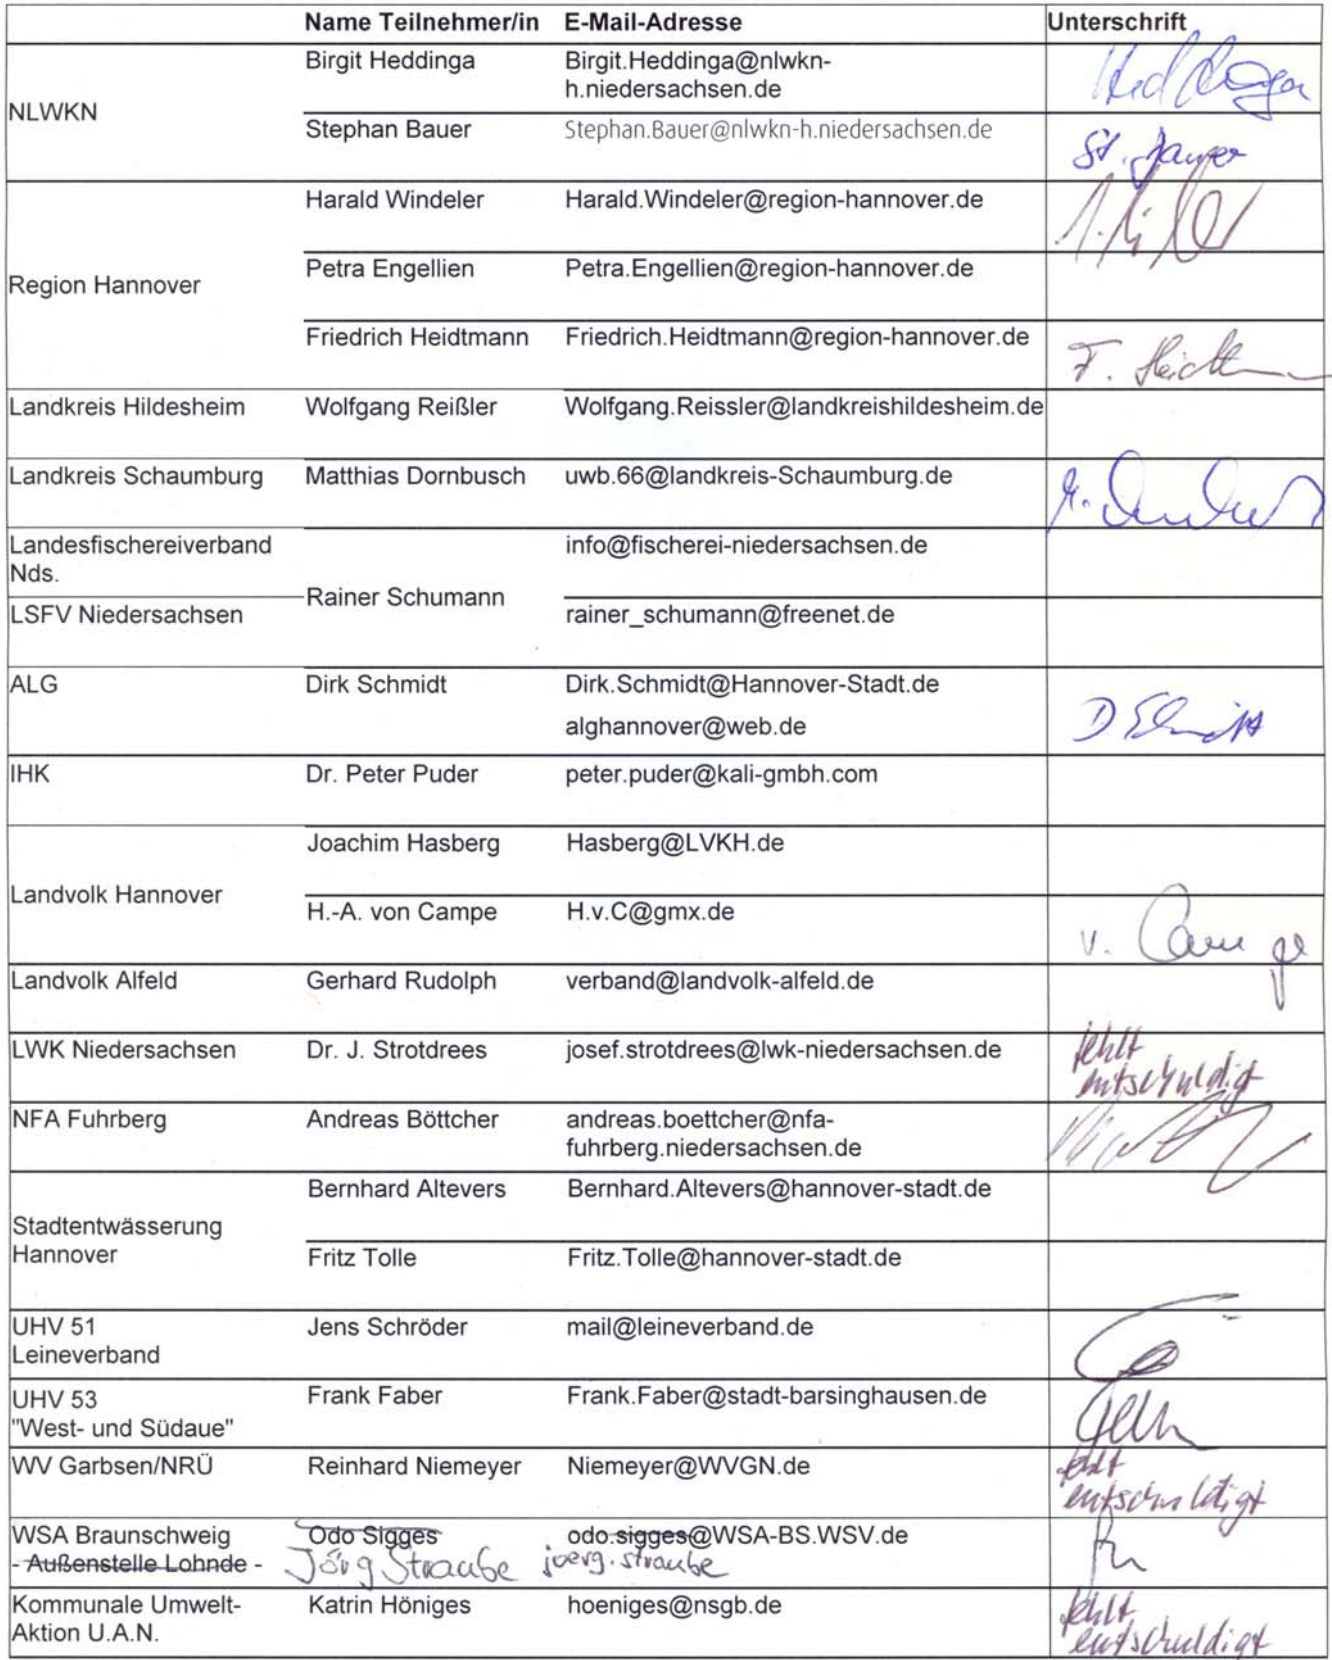 Name Teilnehmer/in E-Mail-Adresse Unterschrift
NLWKN
Birgit Heddinga Birgit.Heddinga@nlwkn-
h.niedersachsen.de
Heddinga
Stephan Bauer Stephan.Bauer@nlwkn-h.niedersachsen.de St. Bauer
Region Hannover
Harald Windeler Harald.Windeler@region-hannover.de
Petra Engellien Petra.Engellien@region-hannover.de
Friedrich Heidtmann Friedrich.Heidtmann@region-hannover.de F. Heidtm
Landkreis Hildesheim Wolfgang Reißler Wolfgang.Reissler@landkreishildesheim.de
Landkreis Schaumburg Matthias Dornbusch uwb.66@landkreis-Schaumburg.de
Landesfischereiverband
Nds.
info@fischerei-niedersachsen.de
Rainer Schumann
LSFV Niedersachsen rainer_schumann@freenet.de
ALG Dirk Schmidt Dirk.Schmidt@Hannover-Stadt.de
alghannover@web.de
D Schmidt
IHK Dr. Peter Puder peter.puder@kali-gmbh.com
Landvolk Hannover
Joachim Hasberg Hasberg@LVKH.de
H.-A. von Campe H.v.C@gmx.de v. Campe
Landvolk Alfeld Gerhard Rudolph verband@landvolk-alfeld.de
LWK Niedersachsen Dr. J. Strotdrees josef.strotdrees@lwk-niedersachsen.de fehlt
entschuldigt
NFA Fuhrberg Andreas Böttcher andreas.boettcher@nfa-
fuhrberg.niedersachsen.de
Stadtentwässerung
Hannover
Bernhard Altevers Bernhard.Altevers@hannover-stadt.de
Fritz Tolle Fritz.Tolle@hannover-stadt.de
UHV 51
Leineverband
Jens Schröder mail@leineverband.de
UHV 53
"West- und Südaue"
Frank Faber Frank.Faber@stadt-barsinghausen.de
WV Garbsen/NRÜ Reinhard Niemeyer Niemeyer@WVGN.de fehlt
entschuldigt
WSA Braunschweig Odo Sigges odo.sigges@WSA-BS.WSV.de
- Außenstelle Lohnde - Jörg Straube joerg.straube
Kommunale Umwelt-
Aktion U.A.N.
Katrin Höniges hoeniges@nsgb.de fehlt
entschuldigt